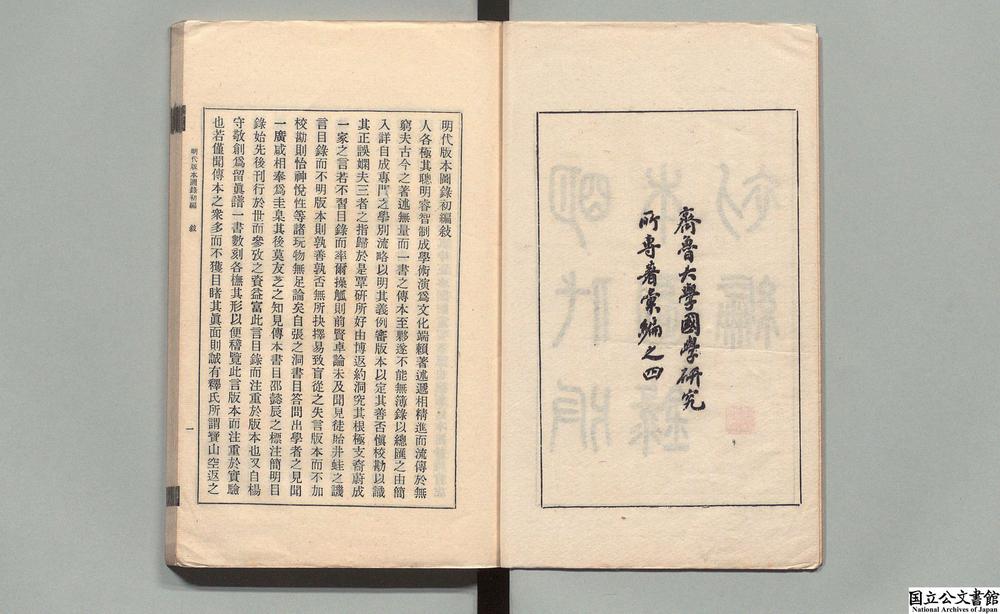 齊魯大學國學研究
所專著彙編之四
明代版本圖錄初編敍
人各極其聰明睿智制成學術演爲文化端賴著述遞相精進而流傳於無
窮夫古今之著述無量而一書之傳本至夥遂不能無簿錄以總匯之由簡
入詳自成專門之學別流略以明其義例審版本以定其善否愼校勘以識
其正誤嫻夫三者之指歸於是覃硏所好由博返約洞究其根極支裔蔚成
一家之言若不習目錄而率爾操觚則前賢卓論未及聞見徒貽井蛙之譏
言目錄而不明版本則孰善孰否無所抉擇易致盲從之失言版本而不加
校勘則怡神悅性等諸玩物無足論矣自張之洞書目答問出學者之見聞
一廣咸相奉爲圭臬其後莫友芝之知見傳本書目邵懿辰之標注簡明目
錄始先後刊行於世而參攷之資益富此言目錄而注重於版本也又自楊
守敬創爲留眞譜一書數刻各橅其形以便稽覽此言版本而注重於實驗
也若僅聞傳本之衆多而不獲目睹其眞面則誠有釋氏所謂寶山空返之
明代版本圖錄初編 敍
一
国立公文書館
National Archives of Japan